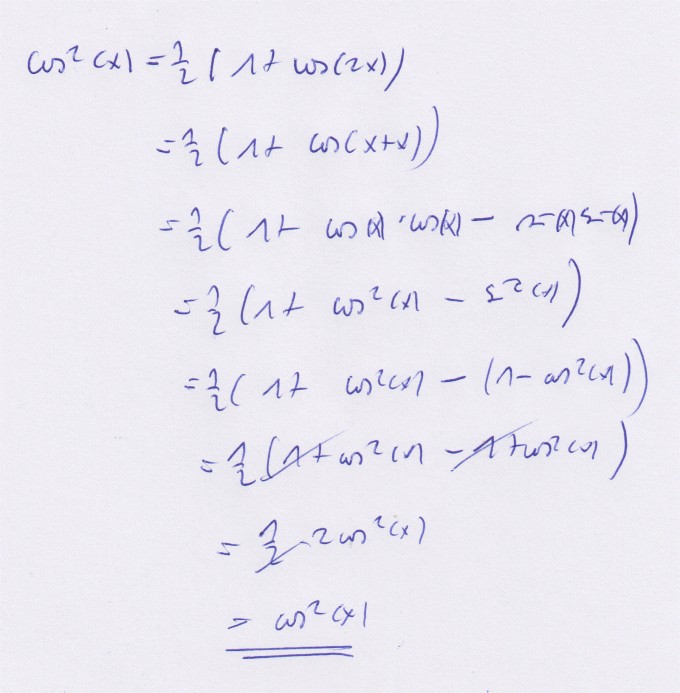 cos²(x) = 1/2 (1 + cos(2x))
= 1/2 (1 + cos(x+x))
= 1/2 (1 + cos(x) · cos(x) - sin(x) sin(x))
= 1/2 (1 + cos²(x) - sin²(x))
= 1/2 (1 + cos²(x) - (1 - cos²(x)))
= 1/2 (1 + cos²(x) - 1 + cos²(x))
= 1/2 · 2 cos²(x)
= cos²(x)